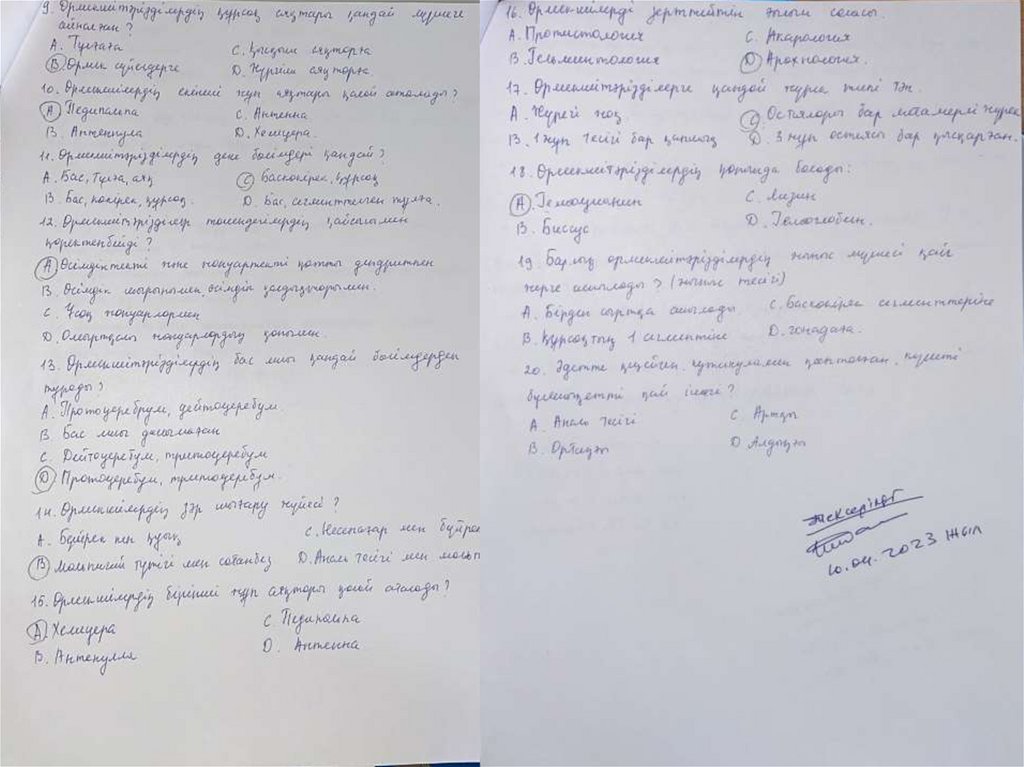 9. Өрмекшітәрізділердің құрсақ аяқтары қандай мүшеге
айналған?
А. Тұлғаға
С. Қысқыш аяқтарға
В. Өрмек сүйелдерге
D. Жүргіш аяқтарға
10. Өрмекшілердің екінші жұп аяқтары қалай аталады?
А Педипальпа
С. Антенна
В. Антеннула
D. Хелицера.
11. Өрмекшітәрізділердің дене бөлімдері қандай?
А. Бас, тұлға, аяқ
С Баскөкірек, құрсақ
В. Бас, көкірек, құрсақ.
D. Бас, сегменттелген тұлға.
12. Өрмекшітәрізділер төмендегілердің қайсысымен
қоректенбейді?
А Өсімдіктекті және жануартекті қатты
В. Өсімдік шырынымен, өсімдік қалдықтарымен.
С. Ұсақ жануарлармен
D. Омыртқалы жануарлардың қанымен.
13. Өрмекшітәрізділердің бас миы қандай бөлімдерден
тұрады?
А. Протоцеребрум, дейтоцеребум.
В. Бас миы дамымаған
С. Дейтоцеребум, тритоцеребум
D Протоцеребум, тритоцеребум.
14. Өрмекшілердің зәр шығару жүйесі?
А. Бүйрек пен қуық
С. Несепағар мен бүйрек
В Мальпигий түтігі мен
D. Аналь тесігі мен
15. Өрмекшілердің бірінші жұп аяқтары қалай аталады?
А. Хелицера
С. Педипальпа
В. Антенулла
D. Антенна
16. Өрмекшілерді зерттейтін ғылым саласы.
А. Протистология
С. Акарология
В. Гельминтология
D Арахнология.
17. Өрмекшітәрізділерге қандай жүрек типі тән.
А. Жүрегі жоқ
С. Остиялары бар метамерлі жүрек
В. 1 жұп тесігі бар қапшық
D. 3 жұп остиясы бар қысқарған.
18. Өрмекшітәрізділердің қанында болады:
А. Гемоцианин
С. Лизин
В. Биссус
D. Гемоглобин.
19. Барлық өрмекшітәрізділердің жыныс мүшесі қай
жерге ашылады? (жыныс тесігі)
А. Бірден сыртқа ашылады
С. Баскөкірек сегменттеріне
В. Құрсақтың 1 сегментіне
D. гонадаға.
20. Әдетте кутикуламен қапталған, күшті
бұлшықетті қай ішегі?
А. Аналь тесігі
С Артқы
В. Ортаңғы
D Алдыңғы
10.04.2023 жыл